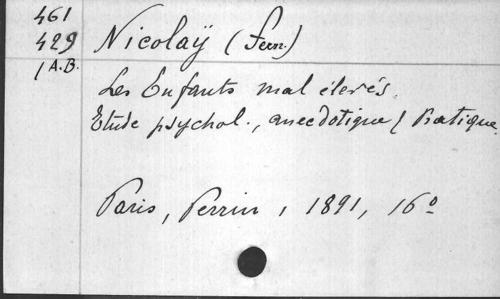 461
429 Nicolaÿ (Fern.)
1 A.B.
Les Enfants mal élevés.
Etude psychol., anecdotique / Pratique.
Paris, Perrin, 1891, 16º